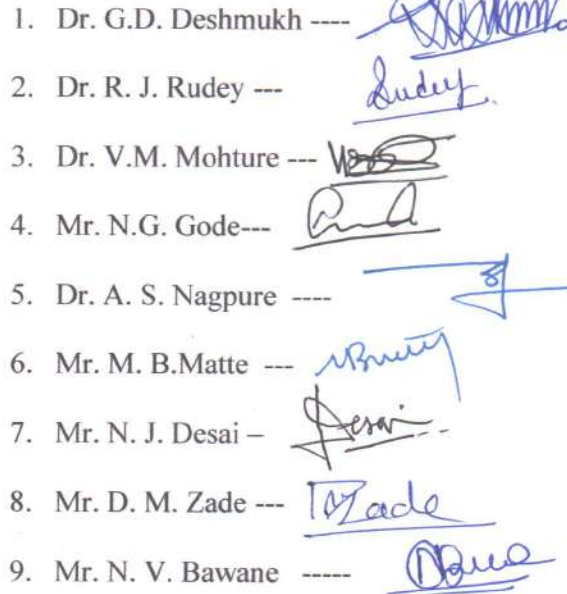 1. Dr. G.D. Deshmukh ----
2. Dr. R. J. Rudey --- Rudey.
3. Dr. V.M. Mohture ---
4. Mr. N.G. Gode---
5. Dr. A. S. Nagpure ----
6. Mr. M. B.Matte ---
7. Mr. N. J. Desai – Desai
8. Mr. D. M. Zade --- Zade
9. Mr. N. V. Bawane -----